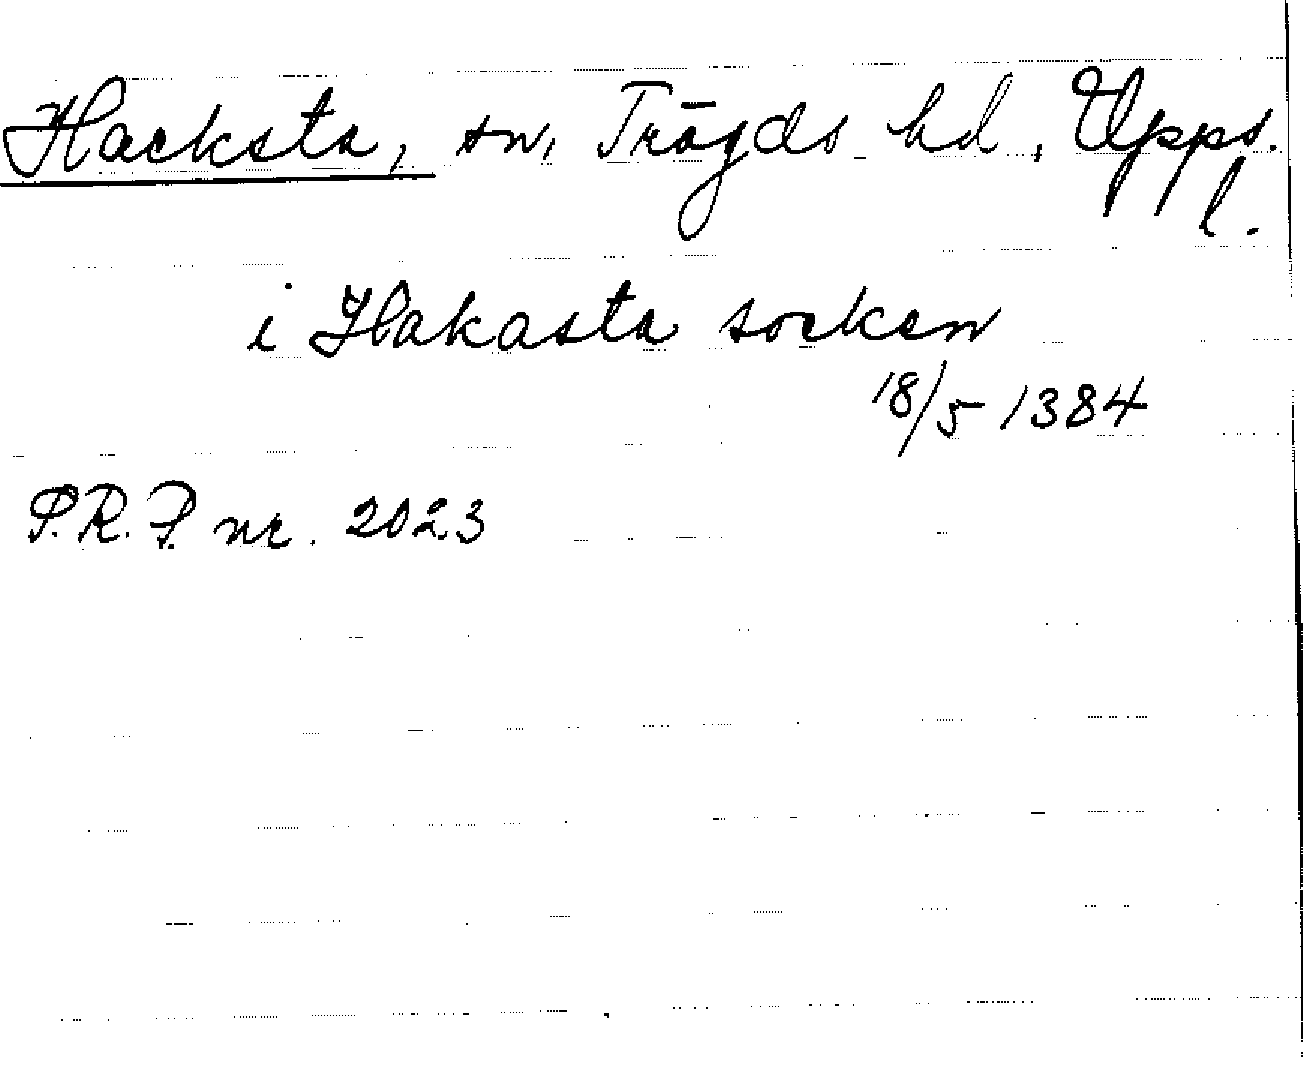 Hacksta, sn, Trögds hd, Upps.
l.
i Hakasta socken
18/5 1384
P.R.P. nr. 2023